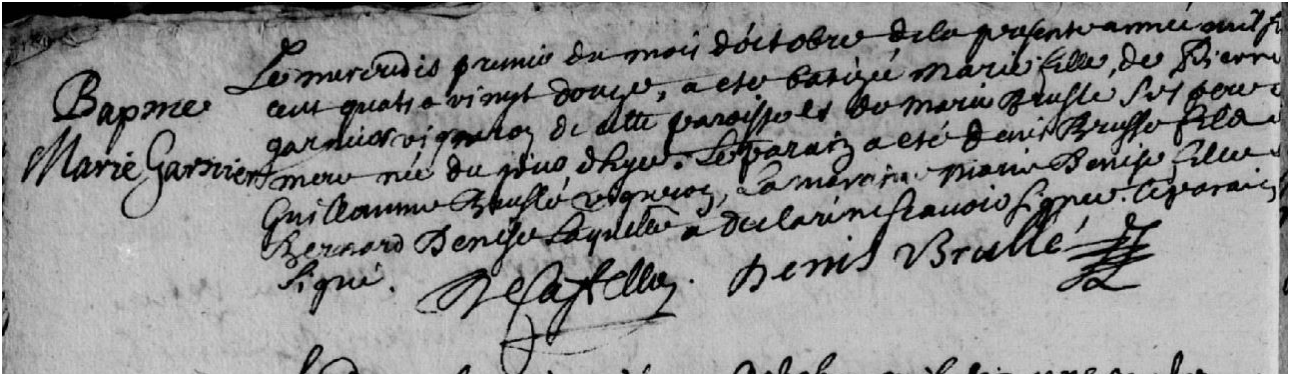 Bapme
Marie Garnier
Le mercredis premie du mois d'octobre de la presente année mil si
cent quatre vingt douze, a eté batizée Marie fille de Pierre
garnier vigneron de cette paroisse et de Marie Brusle ses pere e
mere née du jour d'hyer. Le parain a eté Denis Brusle fils d
Guillaume Bruslé vigneron, La maraine Marie Denise fille d
Bernard Denise laquelle a declaré ne scavoir signer. le parain
signé.
DeCastellan. Denis Brullé